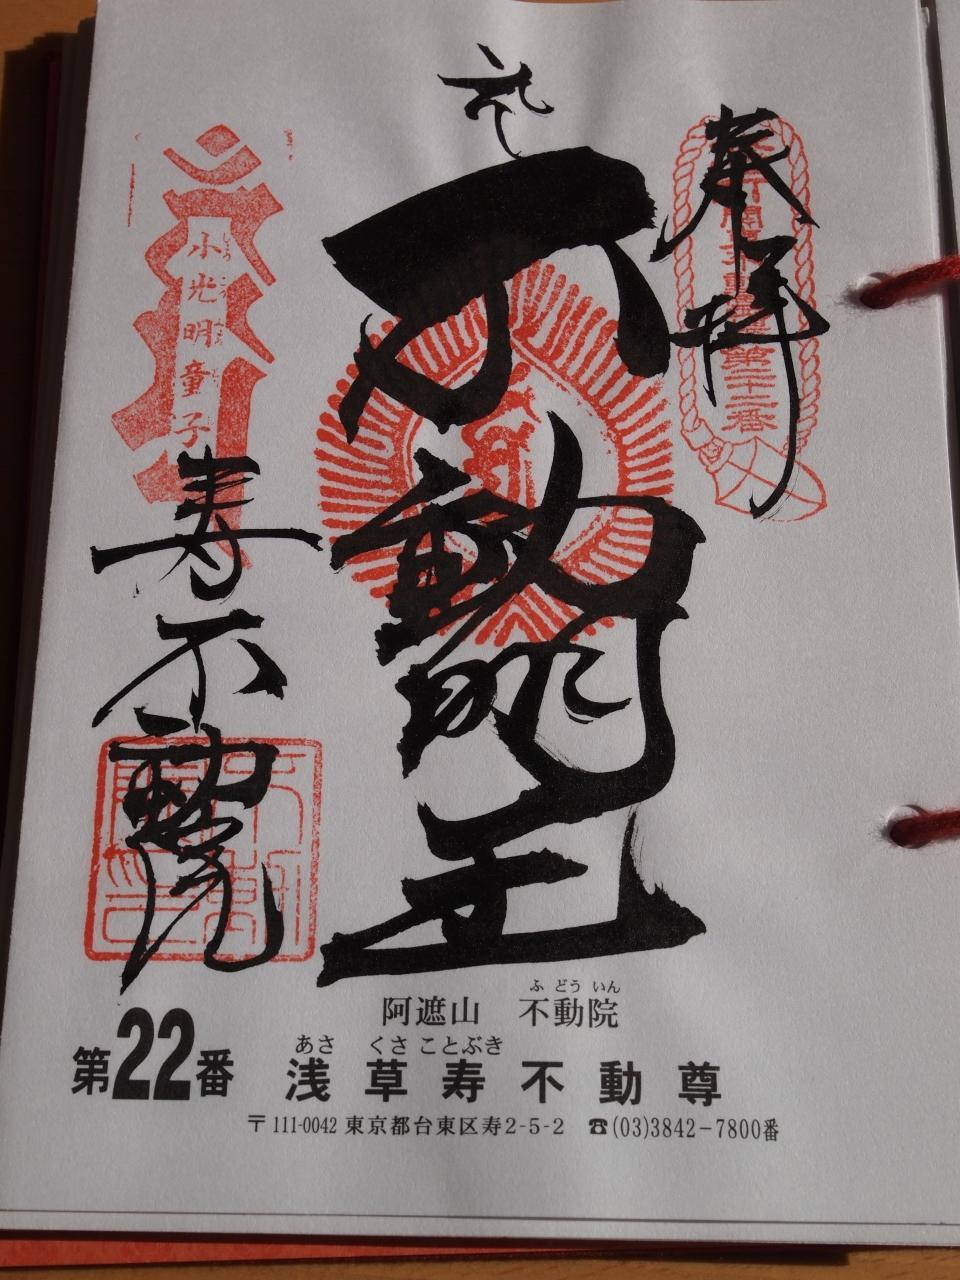 奉拝
不動明王
小光明童子
寿不動院
ふどういん
阿遮山 不動院
あさ くさ ことぶき
第22番 浅草寿不動尊
〒111-0042 東京都台東区寿2-5-2 ☎(03)3842-7800番